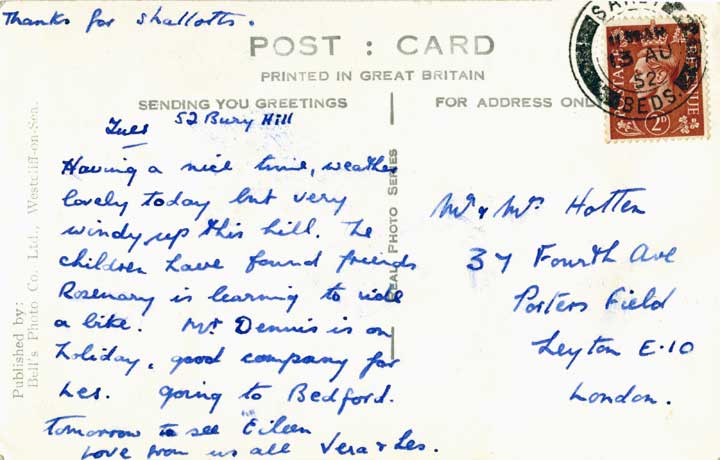 Thanks for shallotts.
POST : CARD
PRINTED IN GREAT BRITAIN
SENDING YOU GREETINGS
FOR ADDRESS ONLY
Tues 52 Bury Hill
Having a nice time, weather
lovely today but very
windy up this hill. The
children have found friends
Rosemary is learning to ride
a bike. Mr Dennis is on
holiday, good company for
Les. going to Bedford.
Tomorrow to see Eileen
Love from us all Vera & Les.
Mr & Mrs Hotten
37 Fourth Ave
Porters Field
Leyton E.10
London.
REAL PHOTO SERIES
Published by:
Bell's Photo Co. Ltd., Westcliff-on-Sea.
13 AU
52
BEDS.
POSTAGE REVENUE
2D